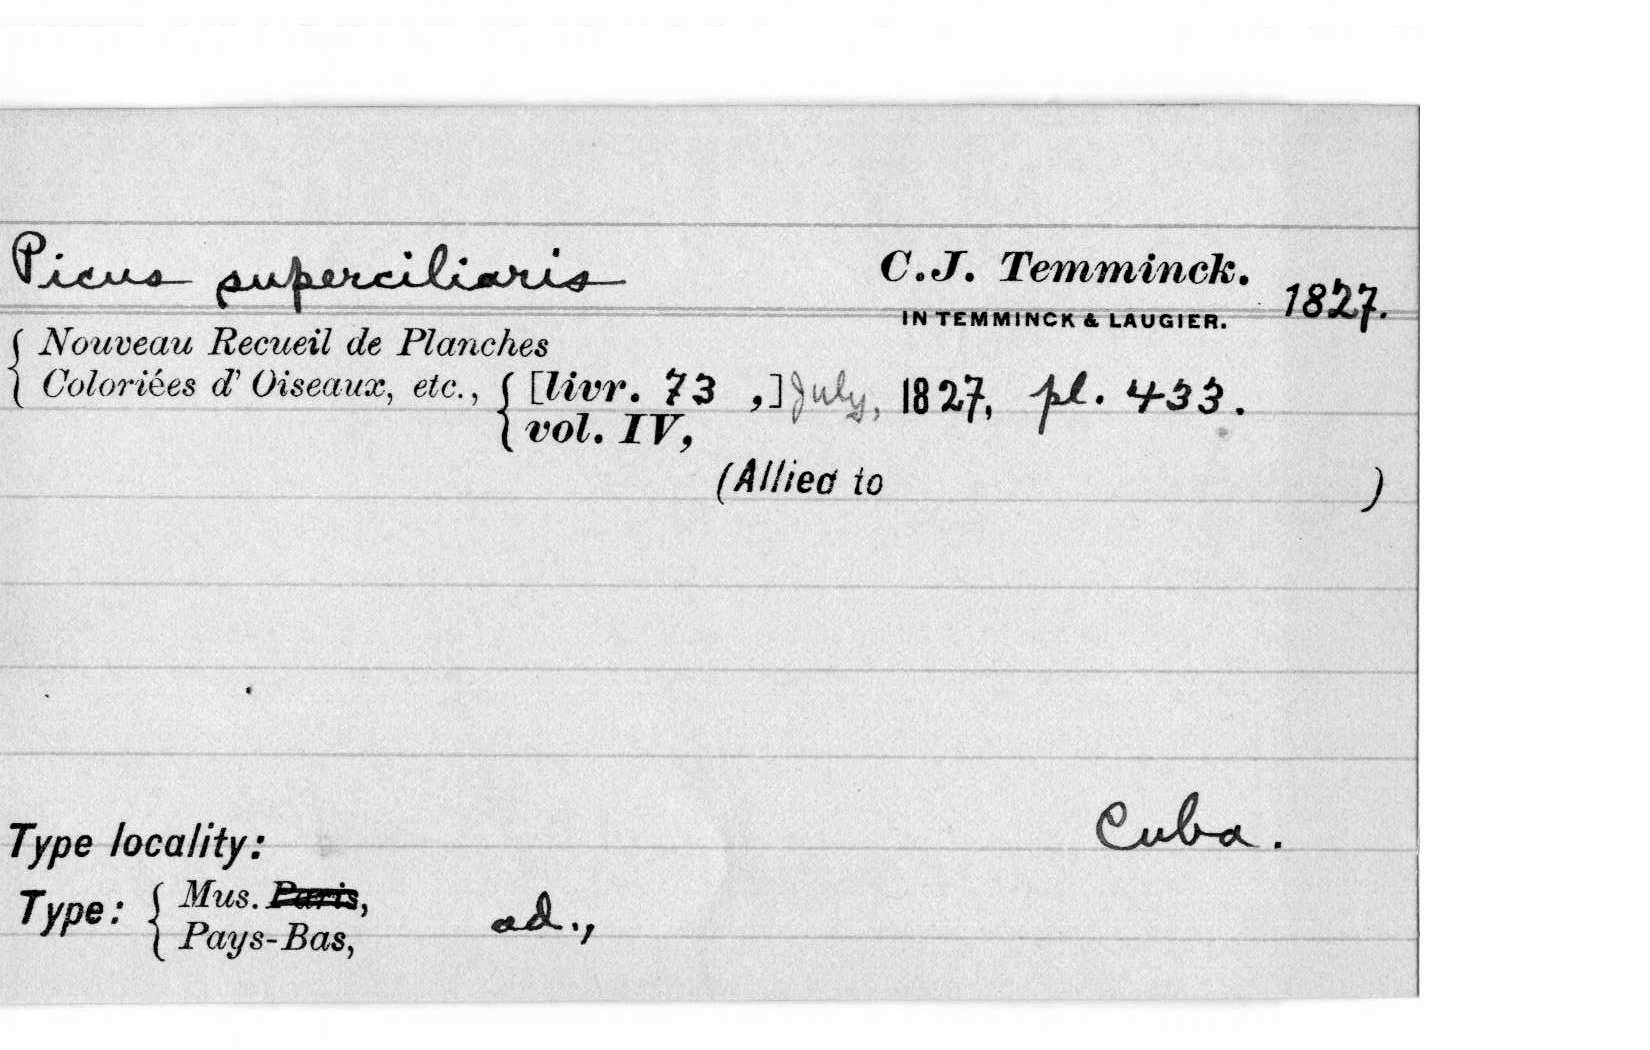 Picus superciliaris C.J. Temminck. 1827.
IN TEMMINCK & LAUGIER.
Nouveau Recueil de Planches
Coloriées d' Oiseaux, etc., [livr. 73 ,] July, 1827, pl. 433.
vol. IV,
(Allied to )
Cuba.
Type locality:
Type: Mus. Paris, ad.,
Pays-Bas,